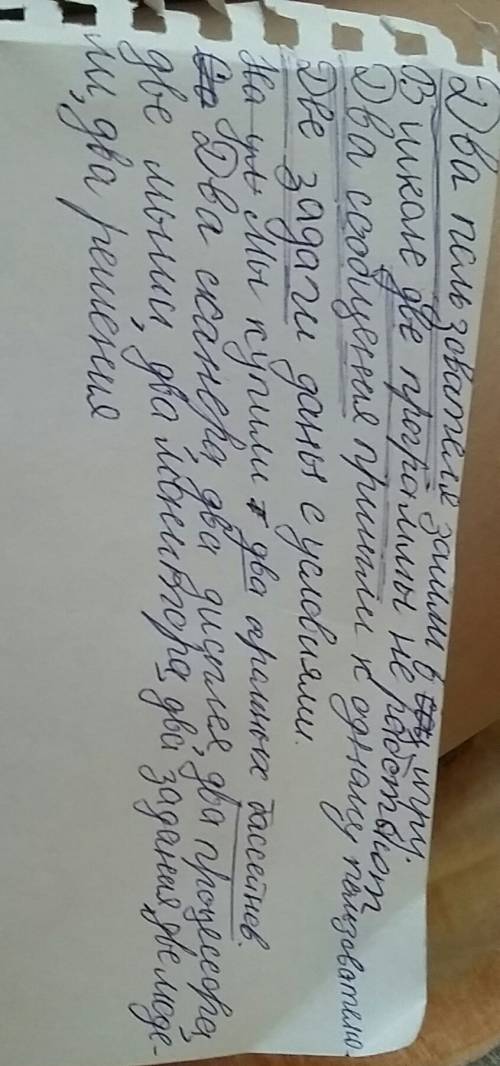 Два пользователя зашли в игру.
В школе две программы не работают
Два сообщения пришли к одному пользователю.
Две задачи даны с условиями.
На Мы купили два огромных бассейнов.
Два сканера, два дисплея, два процессора,
две мыши, два монитора, два задания, две моде-
ли, два решения